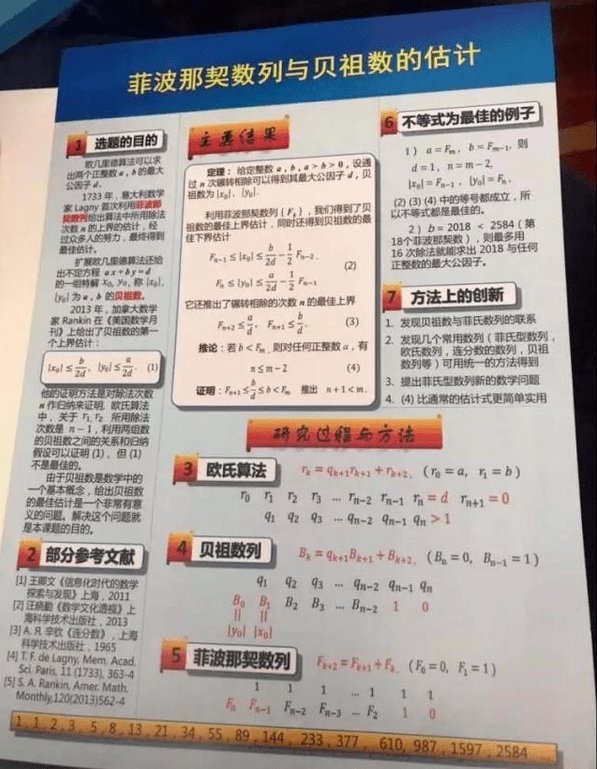 菲波那契数列与贝祖数的估计
1 选题的目的
欧几里德算法可以求
出两个正整数 a, b 的最大
公因子 d.
1733 年，意大利数学
家 Lagny 首次利用菲波那
契数列给出算法中所用除法
次数 n 的上界的估计，经
过众多人的努力，最终得到
最佳估计。
扩展欧几里德算法还给
出不定方程 ax+by=d
的一组特解 x₀, y₀, 称 |x₀|,
|y₀| 为 a, b 的贝祖数。
2013 年，加拿大数学
家 Rankin 在《美国数学月
刊》上给出了贝祖数的第一
个上界估计：
|x₀| ≤ b/2d, |y₀| ≤ a/2d. (1)
他的证明方法是对除法次数
n 作归纳来证明, 欧氏算法
中，关于 r₁, r₂ 所用除法
次数是 n－1，利用两组数
的贝祖数之间的关系和归纳
假设可以证明 (1)、但 (1)
不是最佳的。
由于贝祖数是数学中的
一个基本概念，给出贝祖数
的最佳估计是一个非常有意
义的问题。解决这个问题就
是本课题的目的。
2 部分参考文献
[1] 王卿文《信息化时代的数学
探索与发现》上海，2011
[2] 汪晓勤《数学文化透视》上
海科学技术出版社，2013
[3] А. Я. 辛钦《连分数》，上海
科学技术出版社，1965
[4] T. F. de Lagny, Mem. Acad.
Sci. Paris, 11 (1733), 363-4
[5] S. A. Rankin, Amer. Math.
Monthly,120(2013)562-4
主要结果
定理：给定整数 a, b, a > b > 0, 设通
过 n 次辗转相除可以得到其最大公因子 d, 贝
祖数为 |x₀|, |y₀|.
利用菲波那契数列 {Fₖ}，我们得到了贝
祖数的最佳上界估计，同时还得到贝祖数的最
佳下界估计
Fₙ₋₁ ≤ |x₀| ≤ b/2d − 1/2 Fₙ₋₂.
(2)
Fₙ ≤ |y₀| ≤ a/2d − 1/2 Fₙ₋₁
它还推出了辗转相除的次数 n 的最佳上界
Fₙ₊₂ ≤ a/d, Fₙ₊₁ ≤ b/d. (3)
推论：若 b < Fₘ, 则对任何正整数 a，有
n ≤ m − 2 (4)
证明：Fₙ₊₁ ≤ b/d ≤ b < Fₘ 推出 n + 1 < m.
6 不等式为最佳的例子
1） a = Fₘ, b = Fₘ₋₁, 则
d = 1, n = m − 2,
|x₀| = Fₙ₋₁, |y₀| = Fₙ,
(2) (3) (4) 中的等号都成立，所
以不等式都是最佳的。
2） b = 2018 < 2584（第
18个菲波那契数），则最多用
16 次除法就能求出 2018 与任何
正整数的最大公因子。
7 方法上的创新
1. 发现贝祖数与菲氏数列的联系
2. 发现几个常用数列（菲氏型数列，
欧氏数列，连分数的数列，贝祖
数列等）可用统一的方法得到
3. 提出菲氏型数列新的数学问题
4. (4) 比通常的估计式更简单实用
研究过程与方法
3 欧氏算法 rₖ = qₖ₊₁rₖ₊₁ + rₖ₊₂, (r₀ = a, r₁ = b)
r₀ r₁ r₂ r₃ … rₙ₋₂ rₙ₋₁ rₙ = d rₙ₊₁ = 0
q₁ q₂ q₃ … qₙ₋₂ qₙ₋₁ qₙ > 1
4 贝祖数列 Bₖ = qₖ₊₁Bₖ₊₁ + Bₖ₊₂, (Bₙ = 0, Bₙ₋₁ = 1)
q₁ q₂ q₃ … qₙ₋₂ qₙ₋₁ qₙ
B₀ B₁ B₂ B₃ … Bₙ₋₂ 1 0
|| ||
|y₀| |x₀|
5 菲波那契数列 Fₖ₊₂ = Fₖ₊₁ + Fₖ, (F₀ = 0, F₁ = 1)
1 1 1 … 1 1 1
Fₙ Fₙ₋₁ Fₙ₋₂ Fₙ₋₃ … F₂ 1 0
1, 1, 2, 3, 5, 8, 13, 21, 34, 55, 89, 144, 233, 377, 610, 987, 1597, 2584 …